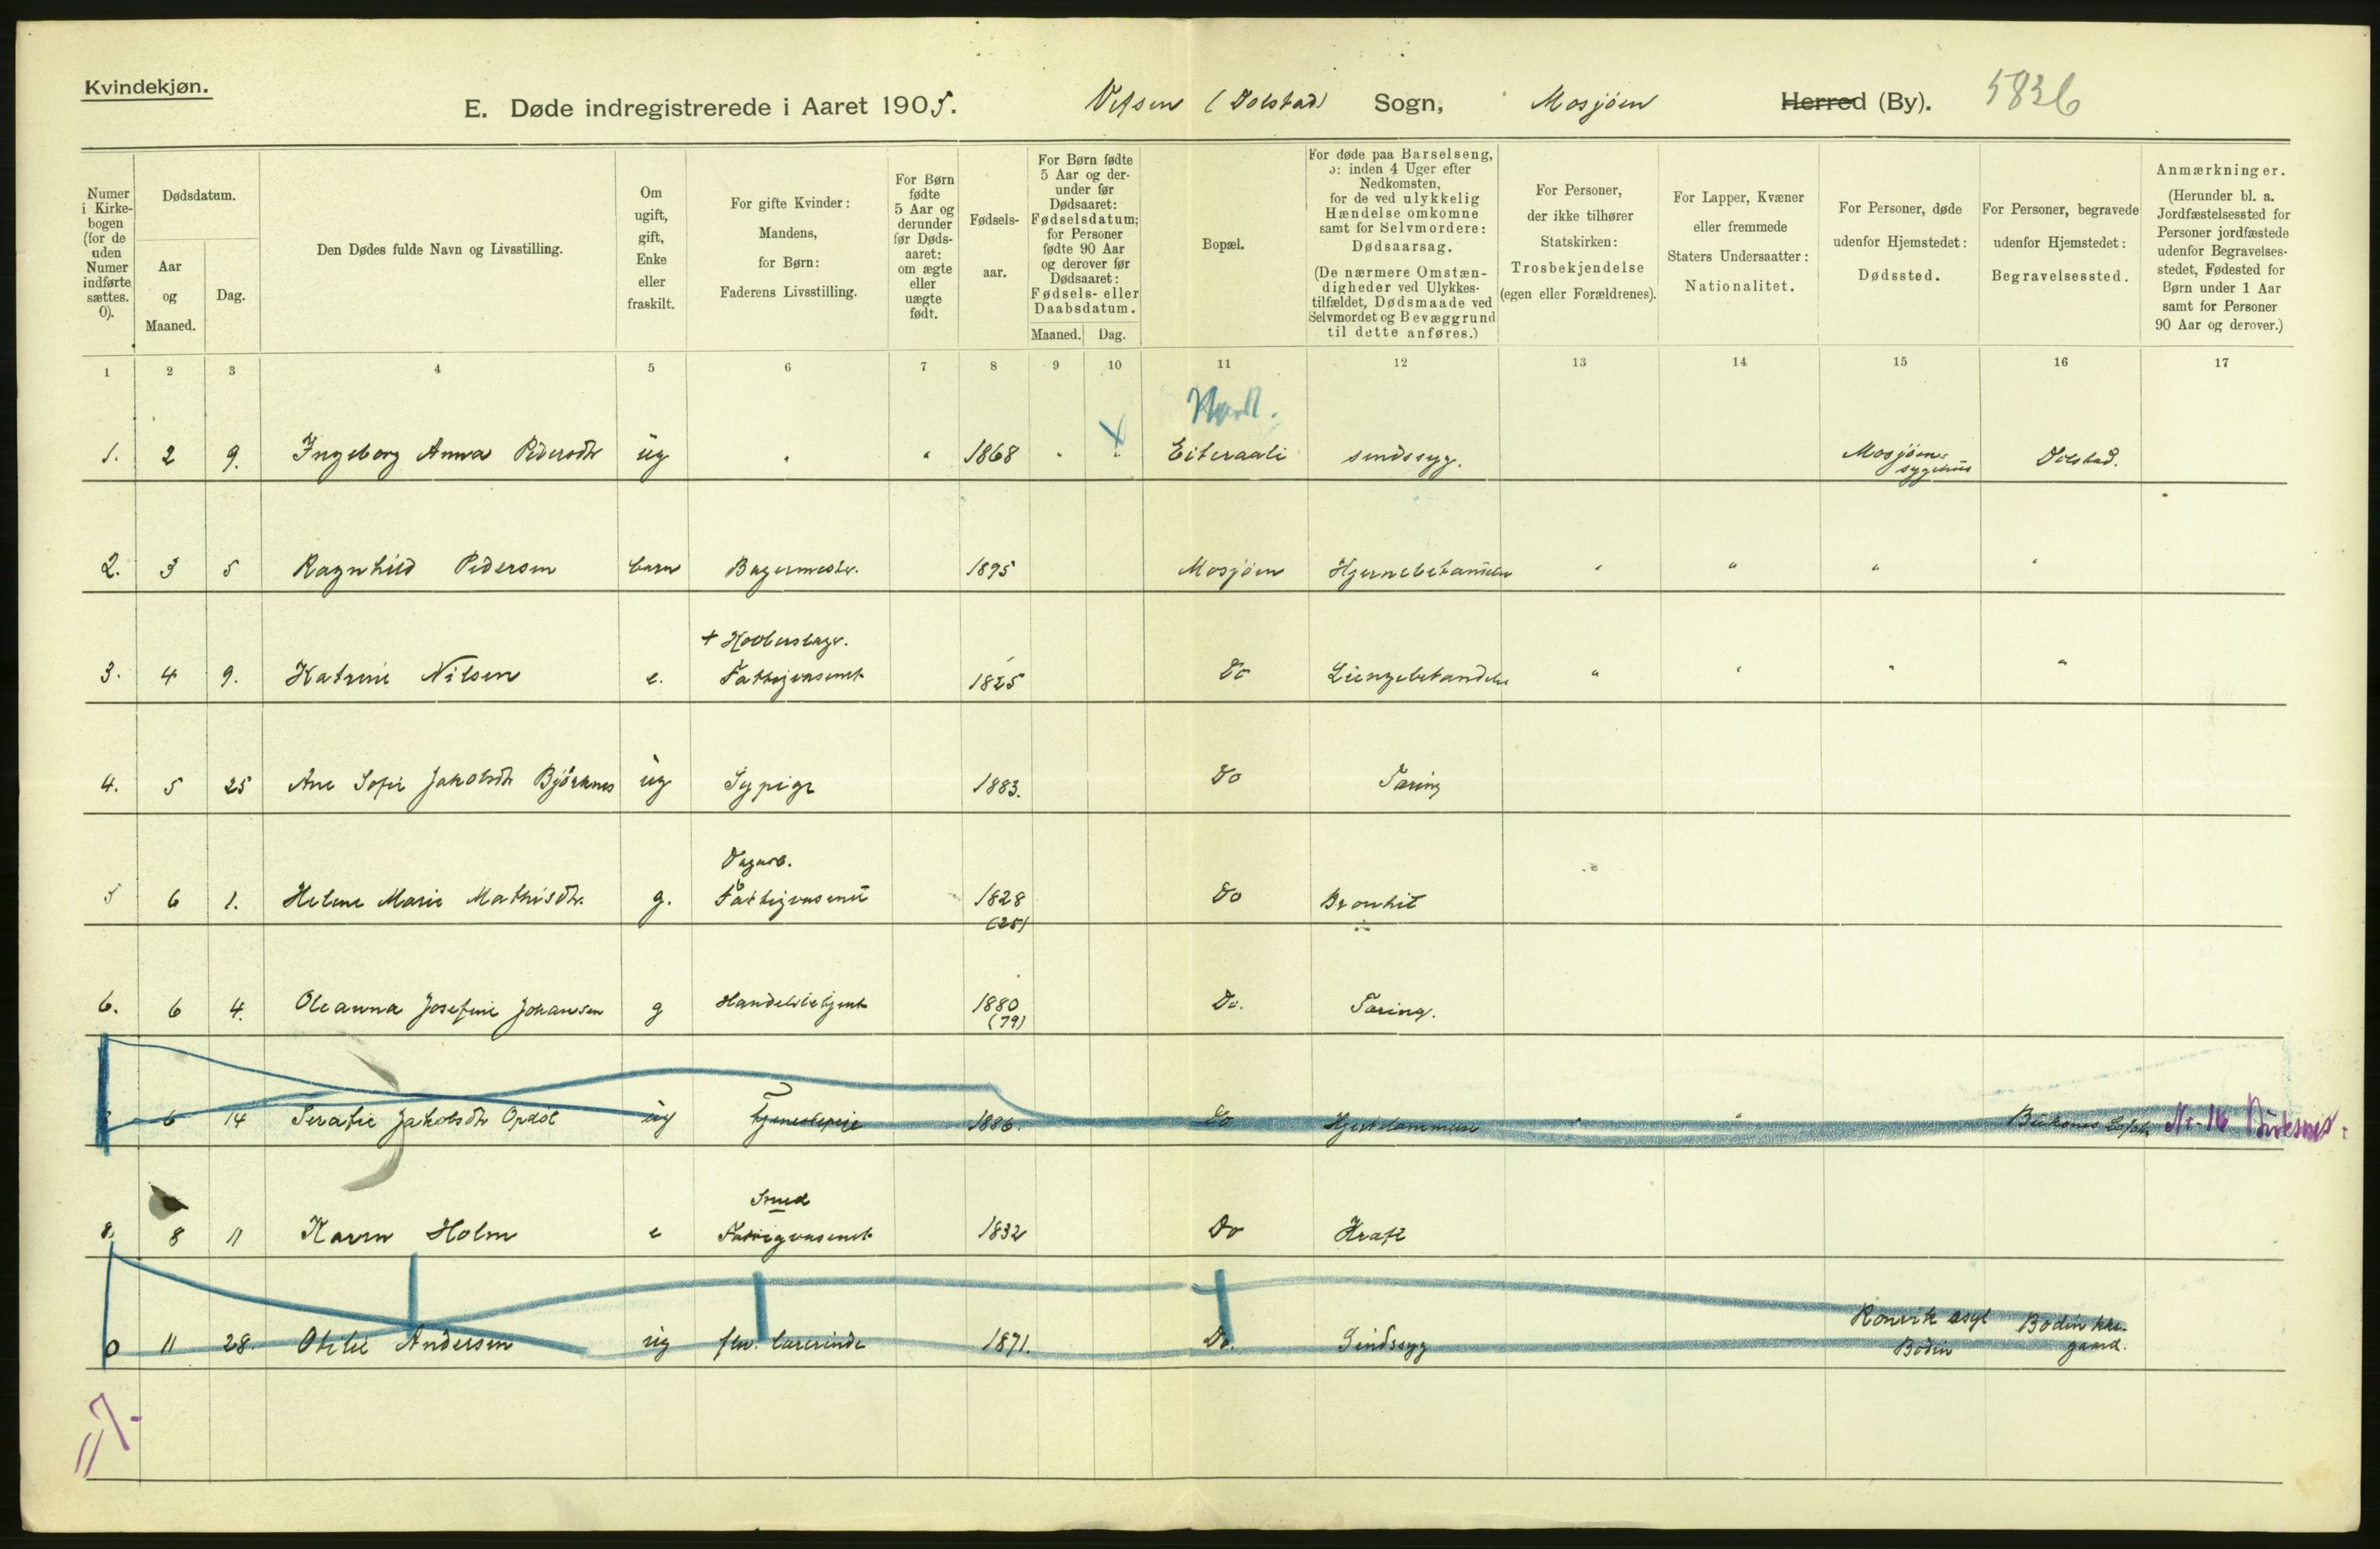 Kvindekjøn.
E. Døde indregistrerede i Aaret 1905. Vefsen (Dolstad) Sogn, Mosjöen Herred (By). 5836
Numer i Kirke- bogen (for de uden Numer indførte sættes. 0).
Dødsdatum.
Aar og Maaned.
Dag.
Den Dødes fulde Navn og Livsstilling.
Om ugift, gift, Enke eller fraskilt.
For gifte Kvinder: Mandens, for Børn: Faderens Livsstilling.
For Børn fødte 5 Aar og derunder før Døds- aaret: om ægte eller uægte født.
Fødsels- aar.
For Børn fødte 5 Aar og der- under før Dødsaaret: Fødselsdatum; for Personer fødte 90 Aar og derover før Dødsaaret: Fødsels- eller Daabsdatum.
Maaned. Dag.
Bopæl.
For døde paa Barselseng, ɔ: inden 4 Uger efter Nedkomsten, for de ved ulykkelig Hændelse omkomne samt for Selvmordere: Dødsaarsag. (De nærmere Omstæn- digheder ved Ulykkes- tilfældet, Dødsmaade ved Selvmordet og Bevæggrund til dette anføres.)
For Personer, der ikke tilhører Statskirken: Trosbekjendelse (egen eller Forældrenes).
For Lapper, Kvæner eller fremmede Staters Undersaatter: Nationalitet.
For Personer, døde udenfor Hjemstedet: Dødssted.
For Personer, begravede udenfor Hjemstedet: Begravelsessted.
Anmærkninger. (Herunder bl. a. Jordfæstelsessted for Personer jordfæstede udenfor Begravelses- stedet, Fødested for Børn under 1 Aar samt for Personer 90 Aar og derover.)
1 2 3 4 5 6 7 8 9 10 11 12 13 14 15 16 17
1. 2 9. Ingeborg Anna Pedersdtr ug " " 1868 " " Eiteraali sindssyg. Mosjöens sygehus Dolstad.
2. 3 5 Ragnhild Pedersen barn Bagermester. 1895 Mosjöen Hjernebetændelse " " " "
+
3. 4 9. Katrine Nilsen e. Fattigvæsenet 1825 Do Lungebetændelse " " " "
4. 5 25 Ane Sofie Jakobsdtr Björknes ug Sypige 1883. Do Tæring
Dagarb.
5 6 1. Helene Marie Mathisdtr. g. Fattigvæsenet 1828 (25) Do Bronkit
6. 6 4. Oleanna Josefine Johansen g Handelsbetjent 1880 (79) Do. Tæring.
6 14 Serafie Jakobsdtr ug Tjenestepige 1886. Do Hjertelammelse " " No 16
Smed
8. 8 11 Karen Holm e Fattigvæsenet 1832 Do Kræft
0 11 28. Otilie Andersen ug fhv. lærerinde 1871. Do. Sindssyg Rönvik asyl Bodin Bodin kke. gaard.
7